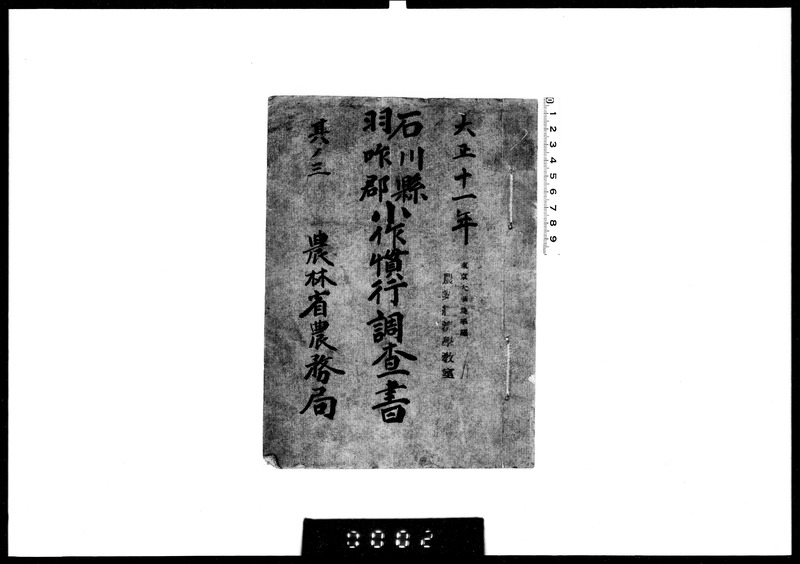 大正十一年
東京大學農學部
農業經濟學教室
石川縣
羽咋郡
小作慣行調查書
其ノ三
農林省農務局
0 1 2 3 4 5 6 7 8 9
0002